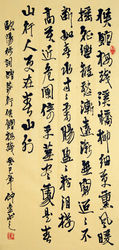 候館梅殘溪橋柳細草薰風暖
搖征轡離愁漸遠漸無窮迢迢不
斷如春水寸寸柔腸盈盈粉淚樓
高莫近危闌倚平蕪盡處是春
山行人更在春山外
歐陽修詞踏莎行候館梅殘癸巳年